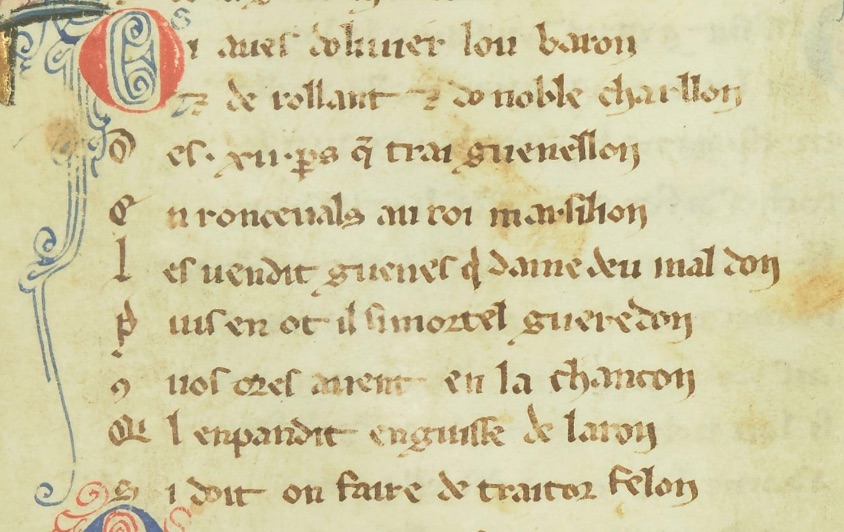 Oi aues doliuier lou baron
et de rollant ⁊ do noble charllon
D es ·xii· ꝑs q̃ trai guenellon
E n ronceuals au roi marsilion
l es uendit guenes q̓ dame deu mal don
p uis en ot il si mortel gueredon
ꝯ uos ores auent en la chancon
Q̃ l enpandit en guisse de laron
S i doit on faire de traitor felon